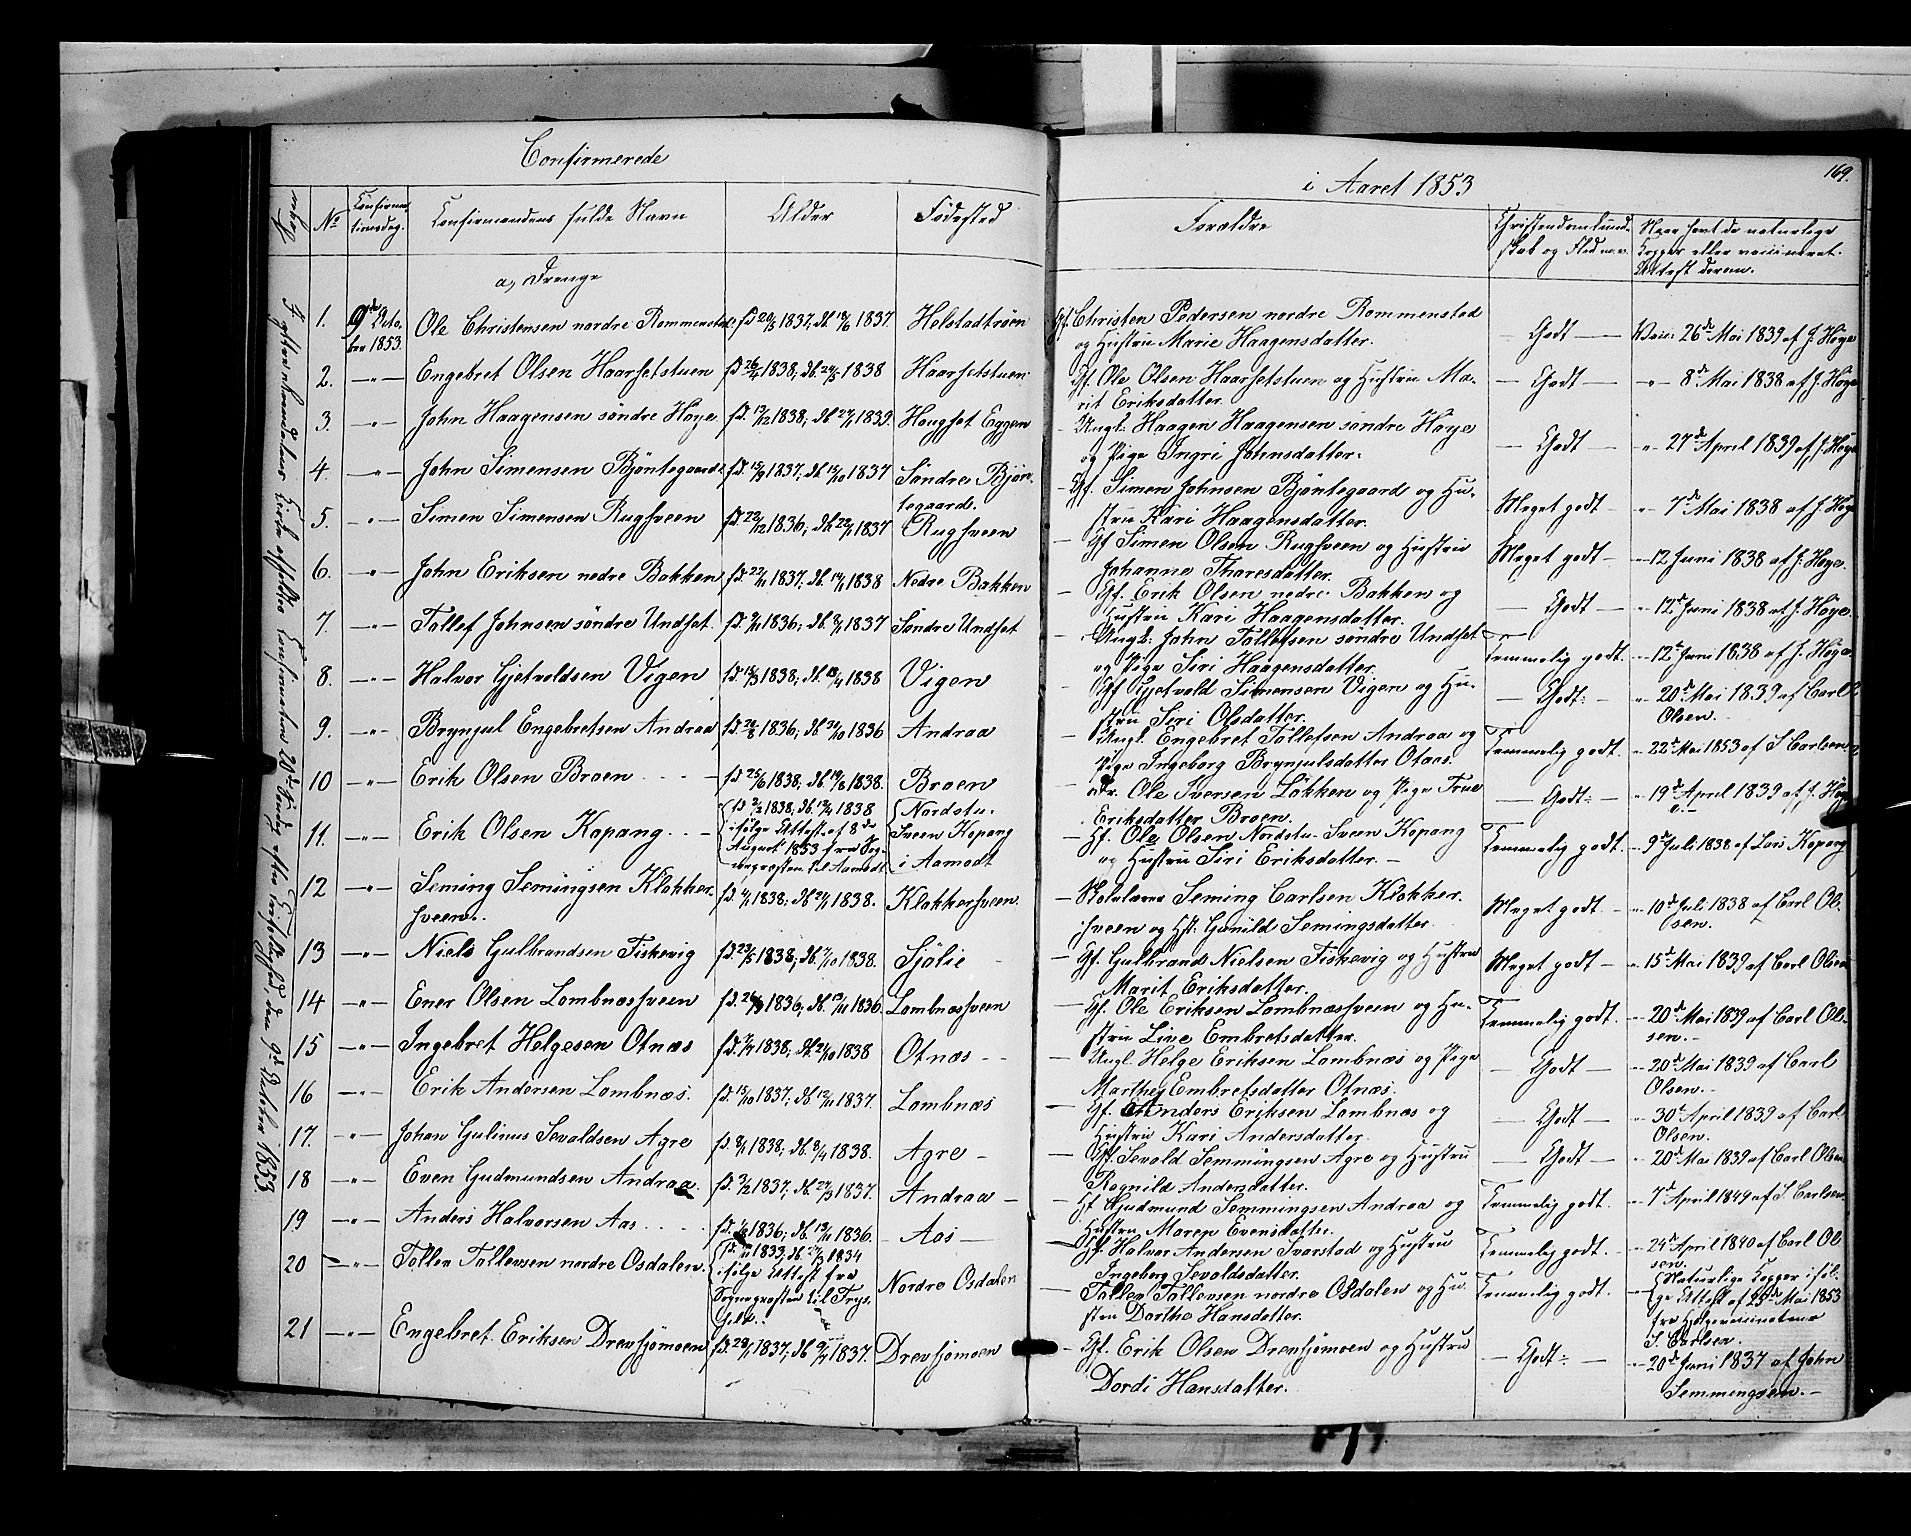 Confirmerede
i Aaret 1853
169.
No
Confirma-
tionsdag.
Confirmandens fulde Navn
Alder
Fødested
Forældre
Christendomskund-
skab og Flid m.v.
Naar havt de naturlige
Kopper eller vaccineret.
Attest derom.
a, Drenge
1. 9de Octo-
ber 1853. Ole Christensen nordre Rommenstad fd 20/5 1837, db. 18/6 1837. Helstadtrøen Gf. Christen Pedersen nordre Rommenstad
og Hustru Marie Haagensdatter. — Godt — Vacc. 26de Mai 1839 af J. Høye
2. —"— Engebret Olsen Haarsetstuen fd 26/4 1838; db. 24/5 1838 Haarsetstuen Gf. Ole Olsen Haarsetstuen og Hustru Ma-
rit Eriksdatter. — Godt — " 8de Mai 1838 af J. Høye
3. —"— John Haagensen søndre Høye fd. 17/12 1838; db 27/1 1839. Hougset Eggen Ungk. Haagen Haagensen søndre Høye
og Pige Ingri Johnsdatter. — Godt — " 27de April 1839 af J. Høye
4. —"— John Simensen Bjøntegaard fd. 15/9 1837; db. 15/10 1837 Søndre Bjøn-
tegaard. Gf. Simen Johnsen Bjøntegaard og Hu-
stru Kari Haagensdatter. Meget godt — " 7de Mai 1838 af J. Høye
5. —"— Simen Simensen Rugsveen fd. 22/12 1836; db. 22/1 1837 Rugsveen Gf Simen Olsen Rugsveen og Hustru
Johanne Tharesdatter. Meget godt — 12 Juni 1838 af J. Høye.
6. —"— John Eriksen nedre Bakken fd. 22/11 1837. db. 14/1 1838 Nedre Bakken Gf. Erik Olsen nedre Bakken og
Hustru Kari Haagensdatter. — Godt — " 12te Juni 1838 af J. Høye.
7. —"— Tollef Johnsen søndre Undset. 1836; db. 8/1 1837 Søndre Undset Ungk. John Tollefsen søndre Undset
og Pige Siri Haagensdatter. Temmelig godt. " 12te Juni 1838 af J. Høye
8. —"— Halvor Gjetvoldsen Vigen 1838; 1838 Vigen Gf Gjetvold Simensen Vigen og Hu-
stru Siri Olsdatter. — Godt — " 20de Mai 1839 af Carl
Olsen.
9. —"— Brynjul Engebretsen Andraa 1836; 1836 Andraa Ungk. Engebret Tollefsen Andraa og
Pige Ingeborg Brynjulsdatter Otnæs. Temmelig godt. " 22de Mai 1853 af S. Carlsen
10 —"— Erik Olsen Broen fd 25/6 1838; db. 19/8 1838. Broen Ole Iversen Løkken og Pige True
Eriksdatter Broen. — Godt — " 19de April 1839 af J. Høye
11. —"— Erik Olsen Kopang fd 2/2 1838; 1838
ifølge Attest af 8de
August 1853 fra Sog-
nepræsten til Aamodt Nordstu-
Sveen Kopang
i Aamodt Gf. Ole Olsen Nordstu-Sveen Kopang
og Hustru Siri Eriksdatter. Temmelig godt. " 9de Juli 1838 af Lars Kopang
12 —"— Seming Semingsen Klokker-
sveen. 1838; 1838. Klokkersveen. Skolelærer Seming Carlsen Klokker-
sveen og Hst. Gunild Semingsdatter. Meget godt. " 10de Juli 1838 af Carl Ol-
sen.
13 —"— Niels Gulbrandsen Fiskevig fd. 23/5 1838; db. 7/10 1838. Sjølie Gf. Gulbrand Nielsen Fiskevig og Hustru
Marit Eriksdatter. Meget godt — " 15de Mai 1839 af Carl Olsen
14 —"— Ener Olsen Lombnæssveen 1836; db. 13/11 1836. Lombnæssveen Gf. Ole Eriksen Lombnæssveen og Hu-
stru Live Embretsdatter. Temmelig godt. " 20de Mai 1839 af Carl Ol-
sen.
15 —"— Ingebret Helgesen Otnæs 1838; 1838 Otnæs Ungk. Helge Eriksen Lombnæs og Pige
Marthe Embretsdatter Otnæs. — Godt — " 20de Mai 1839 af Carl
Olsen.
16 —"— Erik Andersen Lombnæs. fd. 15/10 1837; db. 12/11 1837. Lombnæs Gf. Anders Eriksen Lombnæs og
Hustru Kari Andersdatter. — Godt — " 30te April 1839 af Carl
Olsen.
17. —"— Johan Gulinus Sevaldsen Agre 1838; db. 8/4 1838. Agre Gf. Sevald Semmingsen Agre og Hustru
Ragnild Andersdatter. — Godt — " 20de Mai 1839 af Carl Olsen
18 —"— Even Gudmundsen Andraa. 1837; 1837. Andraa Gf Gudmund Semmingsen Andraa og
Hustru Maren Evensdatter. Temmelig godt. " 7de April 1849 af S. Carlsen
19 —"— Anders Halvorsen Aas 1836; db. 13/11 1836. Aas Gf. Halvor Andersen Svarstad og Hustru
Ingeborg Sevaldsdatter. Temmelig godt. " 24de April 1840 af Carl Ol-
sen.
20 —"— Tollev Tollevsen nordre Osdalen. 1833; 1834
ifølge Attest fra
Sognepræsten til Trys-
sild. Nordre Osdalen Tollev Tollevsen nordre Osdalen og Hu-
stru Dorthe Hansdatter. Temmelig godt. Naturlige Kopper iføl-
ge Attest af 25de Mai 1853
fra Hjelpevaccinateur
S. Carlsen.
21 —"— Engebret Eriksen Drevsjømoen 1837; 1837. Drevsjømoen Gf. Erik Olsen Drevsjømoen og Hustru
Dordi Hansdatter. — Godt — " 20de Juni 1837 af John
Semmingsen.